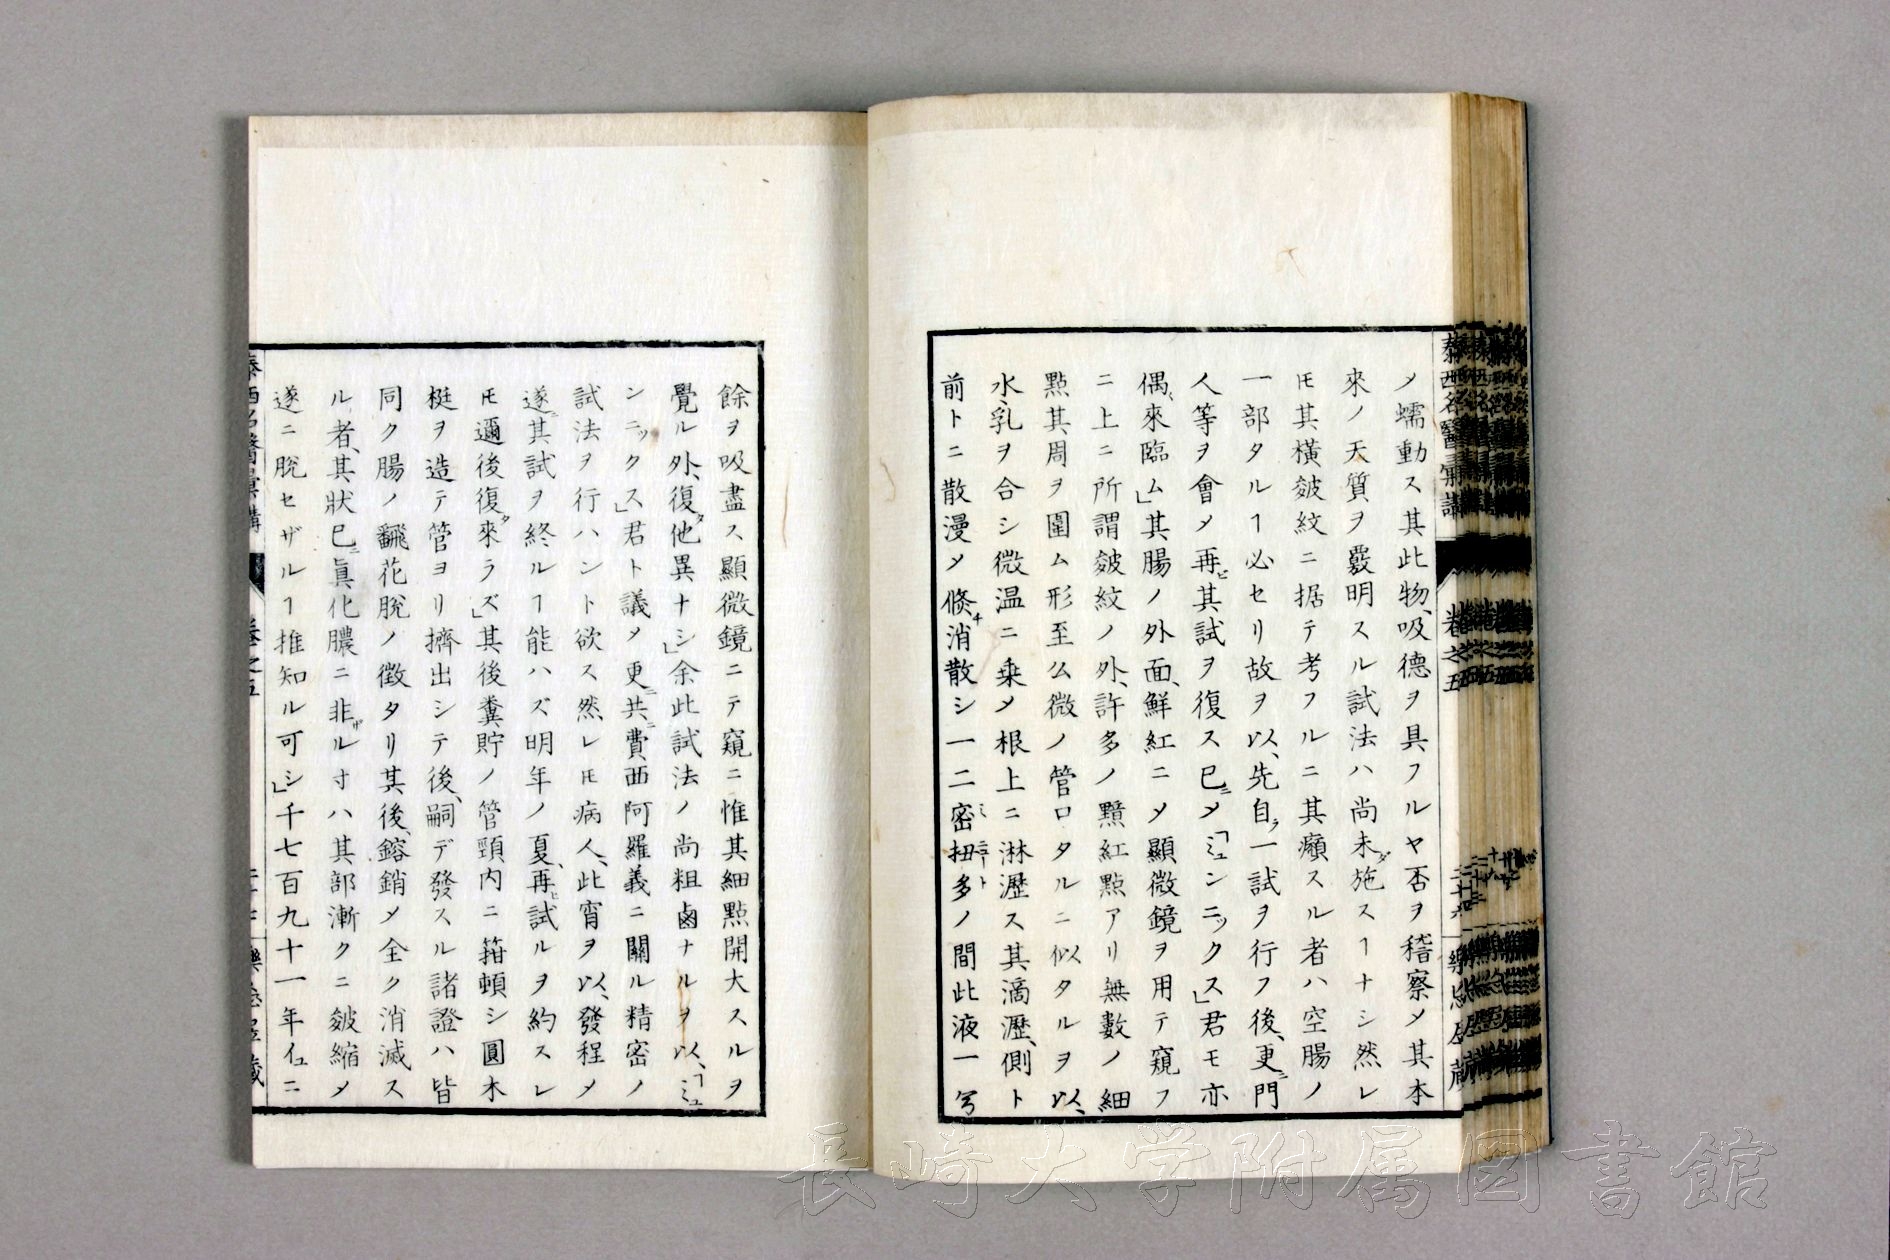 ノ蠕動ス其此物、吸德ヲ具フルヤ否ヲ稽察メ其本
來ノ天質ヲ覈明スル試法ハ尚未ダ施スヿナシ然レ
𪜈其橫皴紋ニ据テ考フルニ其癪スル者ハ空腸ノ
一部タルヿ必セリ故ヲ以、先自ラ一試ヲ行フ後、更ニ門
人等ヲ會メ再ビ其試ヲ復ス已ニメ「ミュンニックス」君モ亦
偶、來臨ム」其腸ノ外面、鮮紅ニメ顯微鏡ヲ用テ窺フ
ニ上ニ所謂皴紋ノ外、許多ノ黶紅點アリ無數ノ細
點其周ヲ圍ム形至ム微ノ管口タルニ似タルヲ以、
水、乳ヲ合シ微温ニ乗メ根上ニ淋瀝ス其滴瀝、側ト
前トニ散漫メ倏チ消散シ一二密扭多ノ間此液一
餘ヲ吸盡ス顯微鏡ニテ窺ニ惟其細點開大スルヲ
覺ル外、復タ他異ナシ」余此試法ノ尚粗鹵ナルヲ以、「ミュ
ンニックス」君ト議メ更ニ共ニ費西阿羅義ニ關ル精密ノ
試法ヲ行ハント欲ス然レ𪜈病人、此宵ヲ以、發程メ
遂ニ其試ヲ終ルヿ能ハズ明年ノ夏、再ビ試ルヲ約スレ
𪜈邇後復タ來ラズ」其後糞貯ノ管頸内ニ箝頓シ圓木
梃ヲ造テ管ヨリ擠出シテ後、嗣デ發スル諸證ハ皆
同ク腸ノ飜花脫ノ徴タリ其後、鎔銷メ全ク消滅ス
ル者、其狀已ニ眞化膿ニ非ザルヿハ其部漸クニ皴縮メ
遂ニ脫セザルヿ推知ル可シ」千七百九十一年イュニ
泰西名醫彙講
卷之五
二十七
泰西名醫彙講
卷之五
二十六
長崎大学附属図書館